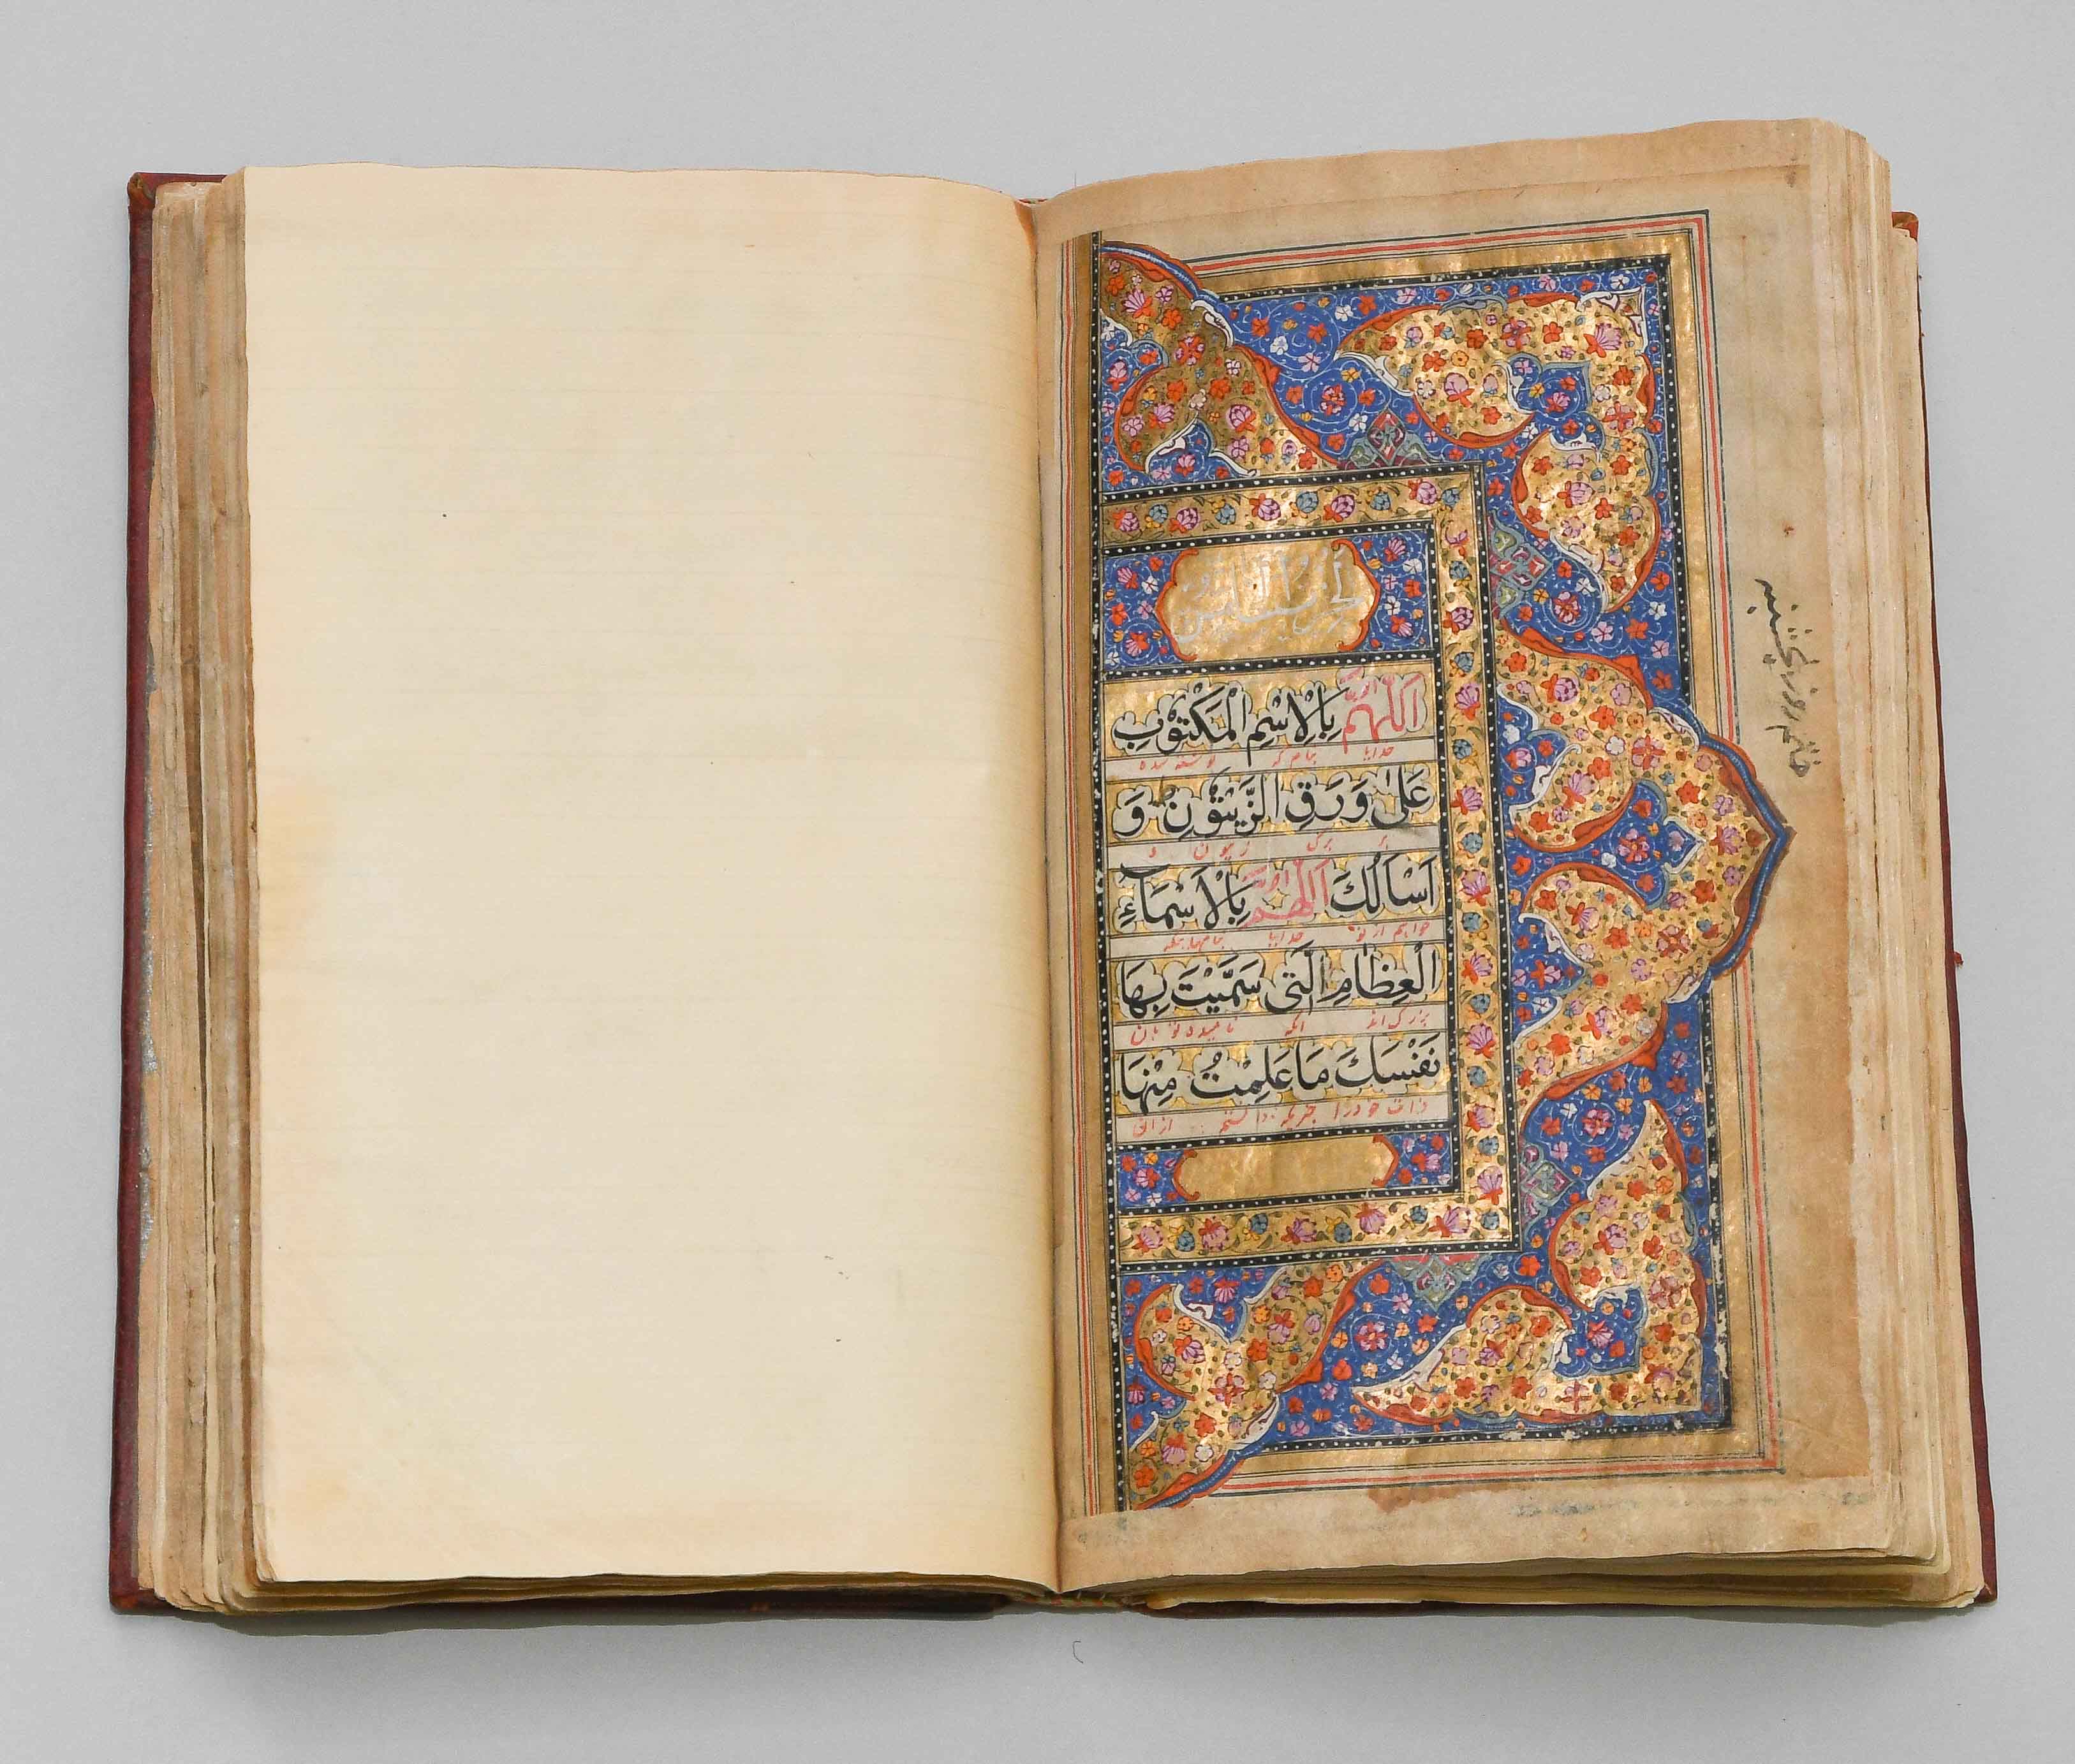 اَللّٰهُمَّ بِالْاِسْمِ الْمَكْتُوْبِ
خدایا بنام که نوشته شده
عَلٰی وَرَقِ الزَّیْتُوْنِ وَ
بر برگ زیتون و
اَسْاَلُكَ اَللّٰهُمَّ بِالْاَسْمَاءِ
خواهم از تو خدایا بنامهای
الْعِظَامِ الَّتِیْ سَمَّیْتَ بِهَا
بزرگ اند نامیده تو بان
نَفْسَكَ مَا عَلِمْتُ مِنْهَا
ذات خود را دانستم از ان